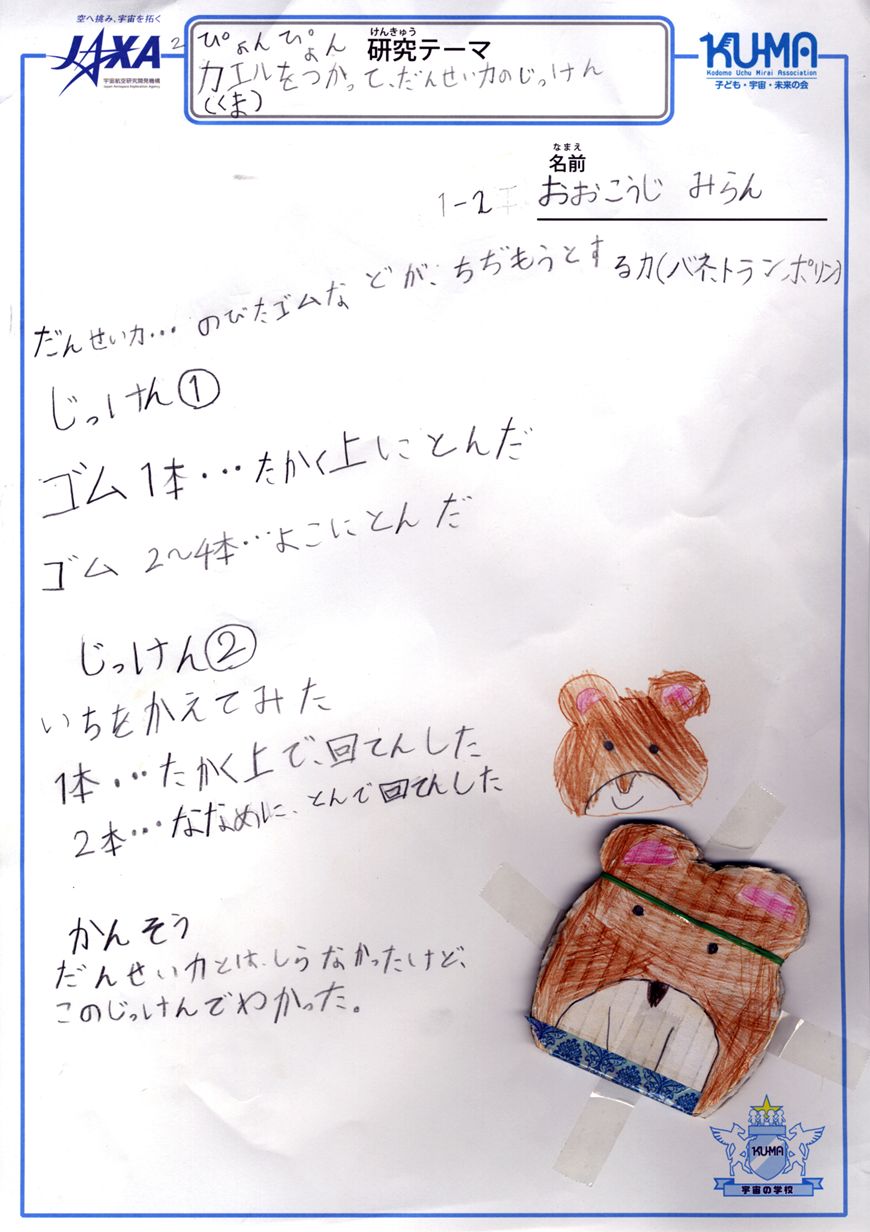 空へ挑み、宇宙を拓く
JAXA
宇宙航空研究開発機構
Japan Aerospace Exploration Agency
けんきゅう
研究テーマ
2 ぴょんぴょん
カエルをつかって、だんせい力のじっけん
(くま)
KU-MA
Kodomo Uchu Mirai Association
子ども・宇宙・未来の会
なまえ
名前
1-2 おおこうじ みらん
だんせい力・・・のびたゴムなどが、ちぢもうとする力(バネ、トランポリン)
じっけん①
ゴム1本・・・たかく上にとんだ
ゴム 2〜4本・・・よこにとんだ
じっけん②
いちをかえてみた
1本・・・たかく上で、回てんした
2本・・・ななめに、とんで回てんした
かんそう
だんせい力とは、しらなかったけど、
このじっけんでわかった。
KU-MA
宇宙の学校